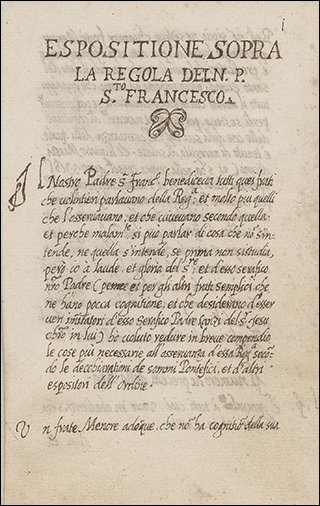 1
ESPOSITIONE SOPRA
LA REGOLA DEL N. P.
S.TO FRANCESCO.
IL Nostro Padre s. Franc.o benediceva tutti quei frati
che volontieri parlavano della Reg.a; et molto piu quelli
che l'osservavano, et che vivevano secondo quella:
et perche malam.te si può parlar di cosa che nō s'in=
tende, ne quella s'intende, se prima non si studia,
però io à laude, et gloria del s.re; et d'esso serafico
nro Padre (per me et per gli altri frati semplici che
ne hano pocca cognitione, et che desiderano d'esser
veri imitatori d'esso serafico Padre del s. Giesu
in lui) hò voluto redure in breve compendio
le cose più necessarie all'osservanza d'essa Reg.a secō=
do le decchiarationi de sommi Pontefici, et d'altri
espositori dell'Ordine.
Un frate Menore adoq̃ue, che nō hà cognitiō della sua